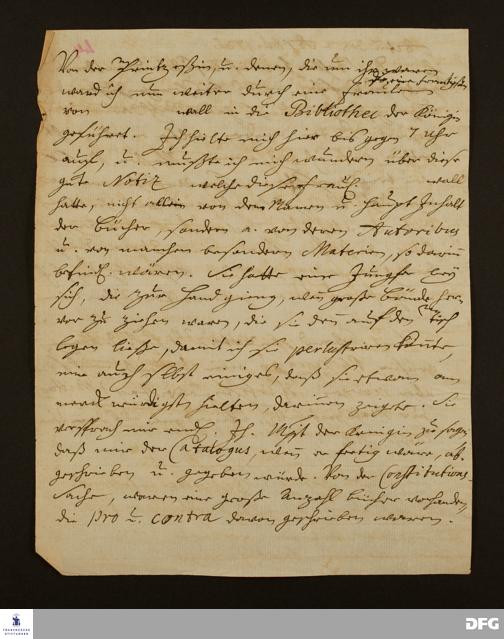 Von der Printzeßin, u. denen, die um ihr waren
ward ich nun weiter durch eine Fräulein
von wall in die Bibliothec der Königin
geführet. Ich hielte mich hier bis gegen 7 Uhr
auf, u. mußte ich mich wundern über diese
gute Notiz welche dieses Fräul. wall
hatte, nicht allein von dem Namen u. Haupt Inhalt
der Bücher, sondern a. von deren Autoribus
u. von manchen besondern Materien, so darin
befindl. wären. Sie hatte eine Jungfer bey
sich, die zur Hand gieng, wenn große Bände her
vor zu ziehen waren, die sie denn auf den Tisch
legen ließe, damit ich sie perlustriren könnte,
mir auch selbst einiges, daß sie etwan am
merckwürdigsten hielten, darinnen zeigte. Sie
versprach mir endl. Ih. Mjst der Königin zu sagen
daß mir der Catalogus, wenn er fertig wäre, ab-
geschrieben u. gegeben würde. Von der Constitutions-
Sache, waren eine große Anzahl Bücher vorhanden,
die pro u. contra davon geschrieben waren.
FRANCKESCHE
STIFTUNGEN
DFG